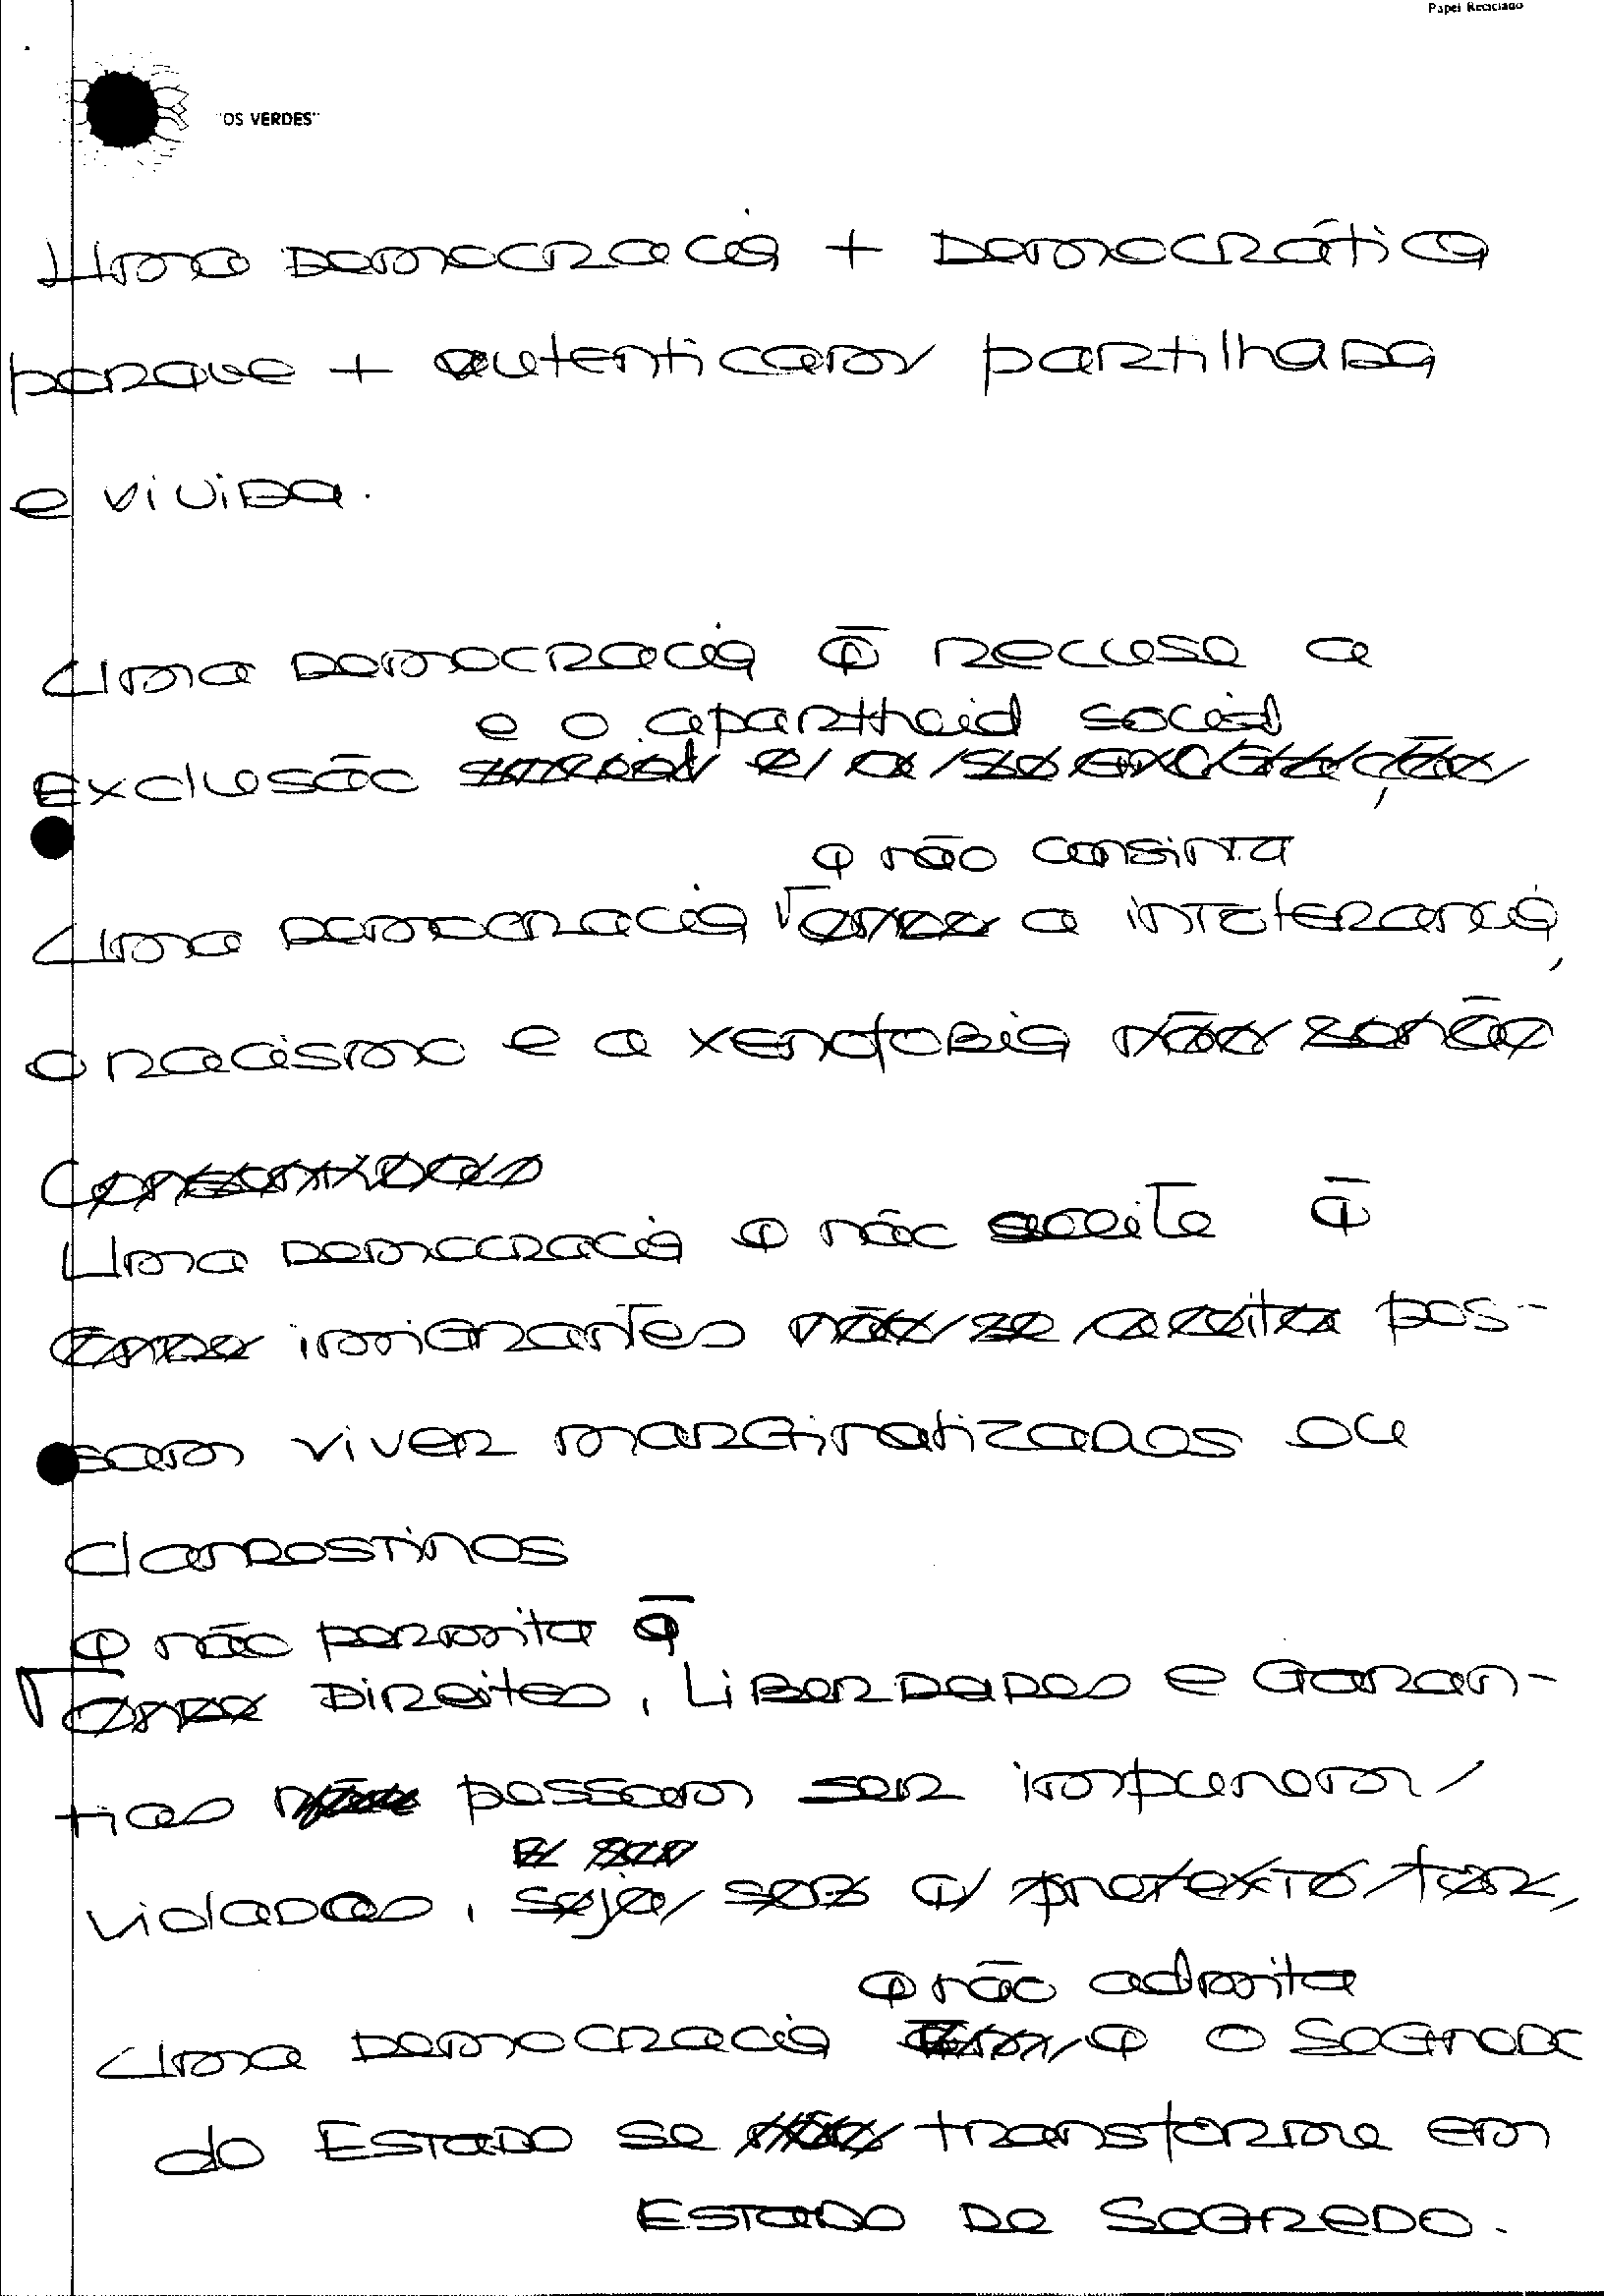 Papel Reciclado
"OS VERDES"
Uma Democracia + Democrática
porque + autenticam/ partilhada
e vivida.
Uma Democracia q̄ recuse a
e o apartheid social
exclusão social e a segregação,
q não consinta
Uma Democracia onde a intolerancia,
o racismo e a xenofobia não serão
Consentidos
Uma Democracia q não aceite q̄
onde imigrantes não se aceita pos-
sam viver marginalizados ou
clandestinos
q não permita q̄
onde Direitos, Liberdades e Garan-
tias não possam ser impunem/
violadas, seja sob q/ pretexto for,
q não admita
Uma Democracia em q o Segredo
do Estado se não transforme em
Estado de Segredo.